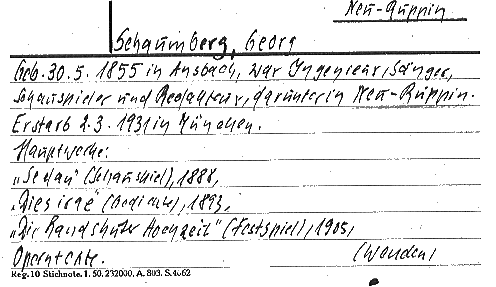 Neu-Ruppin
Schaumberg, Georg
Geb. 30.5. 1855 in Ansbach, war Ingenieur, Sänger,
Schauspieler und Redakteur, darunter in Neu-Ruppin.
Er starb 2.3. 1931 in München.
Hauptwerke:
„Sedan" (Schauspiel), 1888,
„Dies irae" (Gedichte), 1893,
„Die Landshuter Hochzeit" (Festspiel), 1905,
Operntexte.
Reg. 10 Stichnote. 1. 50. 232000. A. 803. S. 4662